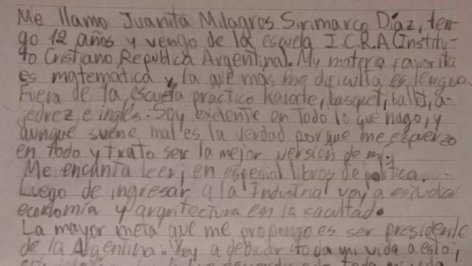 Me llamo Juanita Milagros Sirimarco Díaz, ten-
go 12 años y vengo de la escuela I.C.R.A (Institu-
to Cristiano República Argentina). My materia faporita
es matemática y la que más me dificulta es lengua.
Fuera de la escuela practico Karate, basquet, ballet, a-
jedrez e inglés. Soy exelente en todo lo que hago, y
aunque suene mal es la verdad porque me esfuerzo
en todo y trato ser la mejor versión de mi.
Me encanta leer, en especial libros de política.
Luego de ingresar a la Industrial voy a estudiar
economía y arquitectura en la facultad.
La mayor meta que me propongo es ser presidente
de la Argentina. Voy a dedicar toda mi vida a esto,